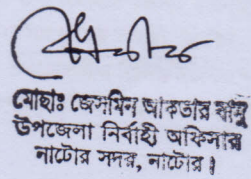 মোছাঃ জেসমিন আকতার বানু
উপজেলা নির্বাহী অফিসার
নাটোর সদর, নাটোর।